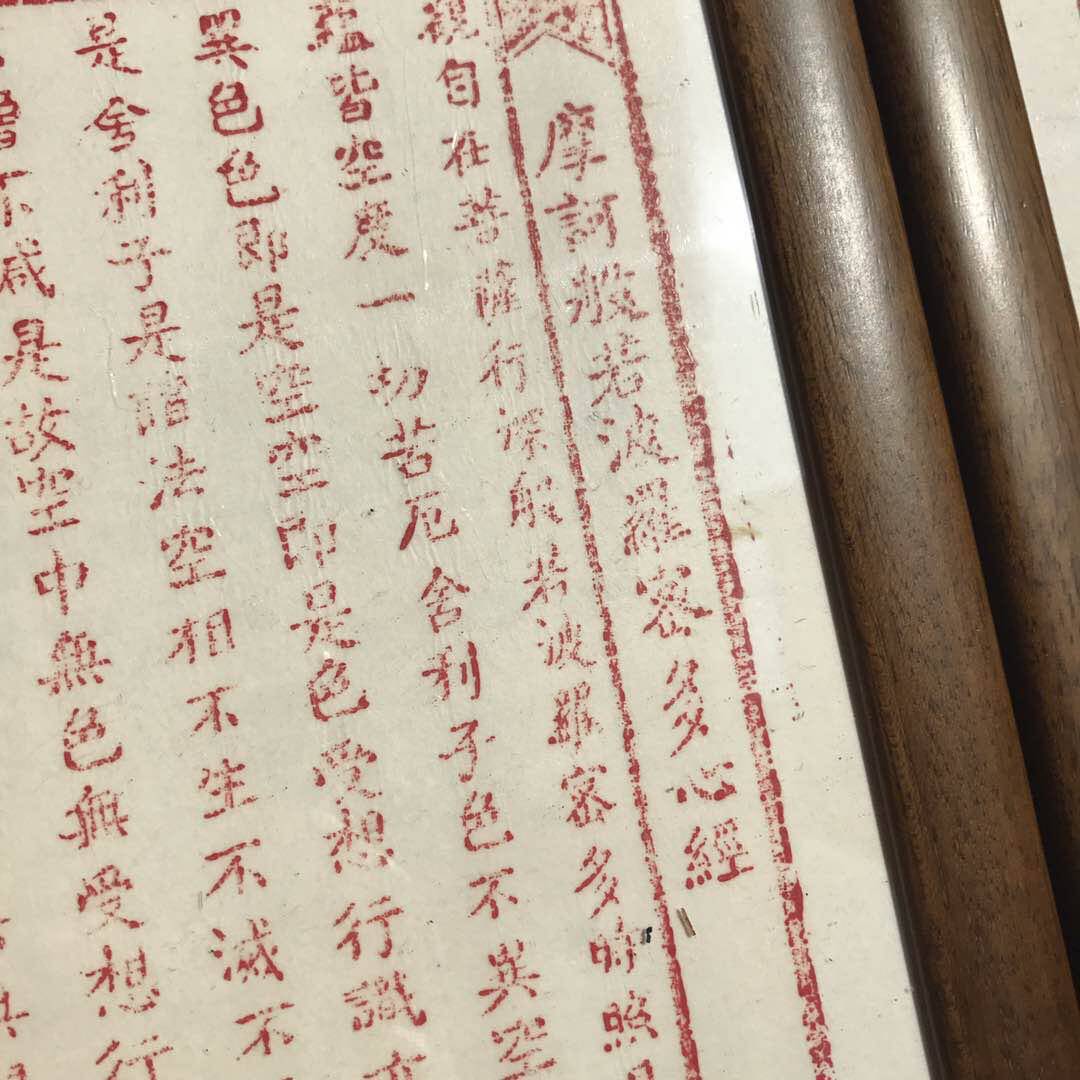 摩訶般若波羅密多心經
觀自在菩薩行深般若波羅密多時照
蘊皆空度一切苦厄舍利子色不異空
異色色即是空空即是色受想行識亦
是舍利子是諸法空相不生不滅不
增不減是故空中無色無受想行